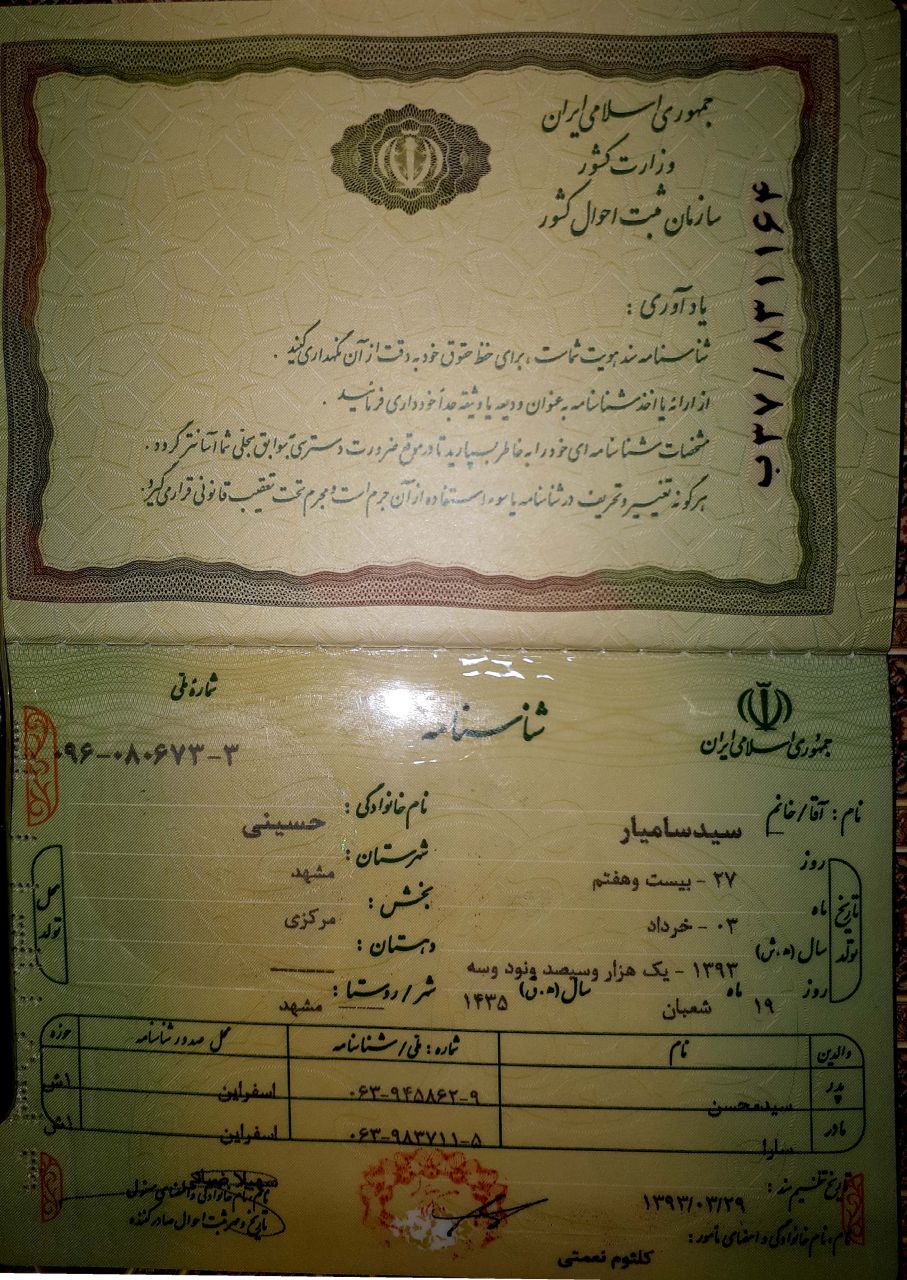 جمهوری اسلامی ایران
وزارت کشور
سازمان ثبت احوال کشور
ب۳۷/۸۳۱۱۶۴
یادآوری :
شناسنامه سند هویت شماست ، برای حفظ حقوق خود به دقت از آن نگهداری کنید .
از ارائه یا اخذ شناسنامه به عنوان ودیعه یا وثیقه جداً خودداری فرمائید .
مشخصات شناسنامه ای خود را به خاطر بسپارید تا در موقع ضرورت دسترسی به سوابق سجلی شما آسانتر گردد .
هرگونه تغییر و تحریف در شناسنامه یا سوء استفاده از آن جرم است و مجرم تحت تعقیب قانونی قرار می گیرد.
جمهوری اسلامی ایران
شناسنامه
شماره ملی
۰۹۶-۰۸۰۶۷۳-۳
نام : آقا/خانم سیدسامیار نام خانوادگی : حسینی
تاریخ تولد
روز ۲۷ - بیست وهفتم
ماه ۰۳ - خرداد
سال (ه.ش) ۱۳۹۳ - یک هزار وسیصد ونود وسه
روز ۱۹ ماه شعبان سال (ه.ق) ۱۴۳۵
محل تولد
شهرستان : مشهد
بخش : مرکزی
دهستان : ـــــــ
شهر/روستا : مشهد
والدین نام شماره : ملی/شناسنامه محل صدور شناسنامه حوزه
پدر سیدمحسن ۰۶۳-۹۴۵۸۶۲-۹ اسفراین ۱ش
مادر سارا ۰۶۳-۹۸۳۷۱۱-۵ اسفراین ۱ش
تاریخ تنظیم سند : ۱۳۹۳/۰۳/۲۹
نام، نام خانوادگی و امضای مأمور :
کلثوم نعمتی
نام، نام خانوادگی و امضای مسئول
تاریخ و مهر ثبت احوال صادرکننده